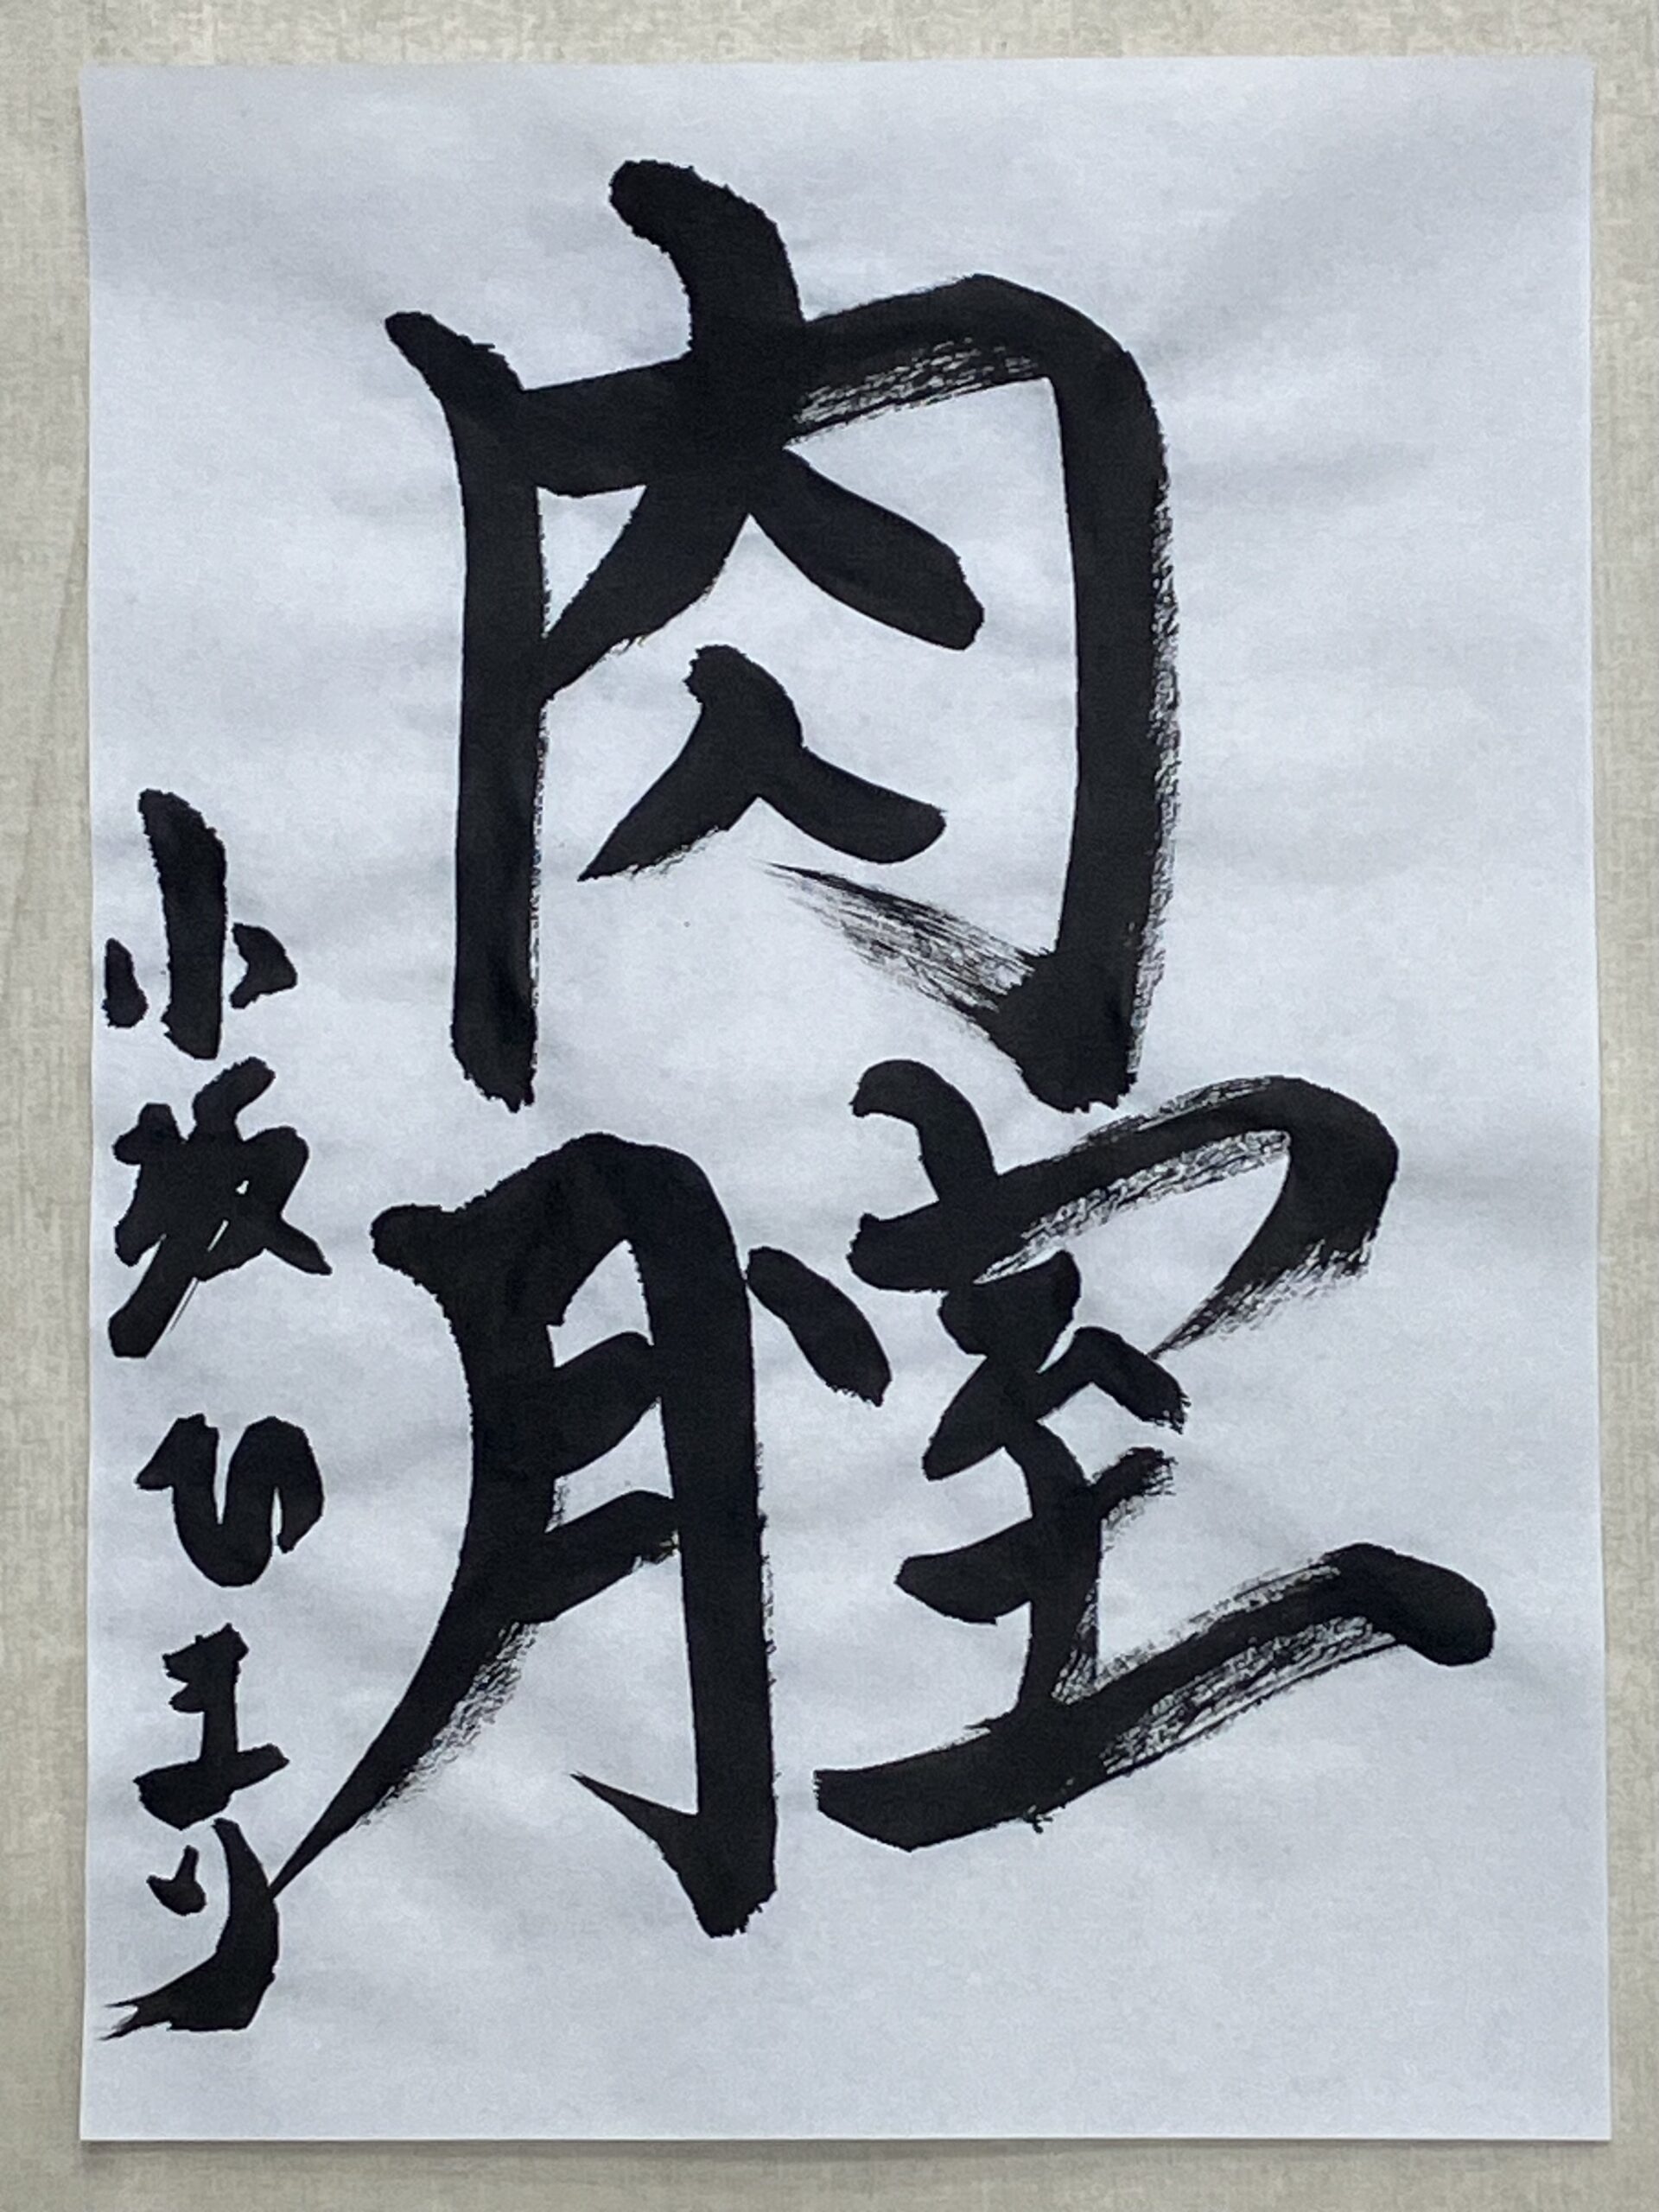 肉腟
小坂ひまり